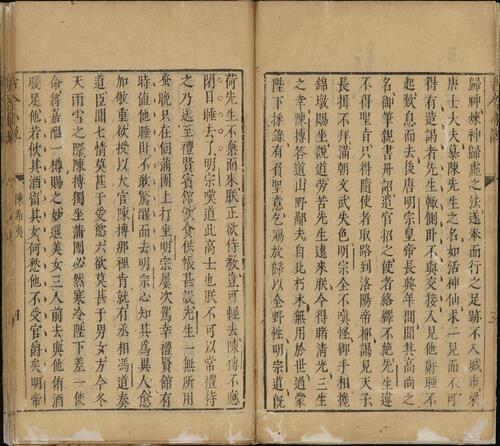 歸神煉神歸虛之法遂奉而行之足跡不入城市梁
唐士大夫慕陳先生之名如活神仙求一見而不可
得有造謁者先生輒側臥不與交接人見他鼾睡不
起歎息而去後唐明宗皇帝長興年間聞其高尚之
名御筆親書丹詔遣官招之使者絡繹不絕先生違
不得聖旨只得隨使者取路到洛陽帝都謁見天子
長揖不拜滿朝文武失色明宗全不嗔怪御手相攙
錦墩賜坐說道勞苦先生遠來朕今得睹清光三生
之幸陳摶答道山野鄙夫自比朽木無用於世過蒙
陛下採錄有負聖意乞賜放歸以全野性明宗道旣
荷先生不棄而來朕正欲侍教豈可輕去陳摶不應
閉目睡去了明宗嘆道此高士也朕不可以常禮待
之乃送至禮賢賓館飲食供帳甚設先生一無所用
蚤晚只在個蒲團上打坐明宗屢次駕幸禮賢館有
時值他睡臥不敢驚醒而去明宗心知其爲異人愈
加敬重欲授以大官陳摶那裡肯就有丞相馮道奏
道臣聞七情莫甚于愛慾六欲莫甚于男女方今冬
天雨雪之際陳摶獨坐蒲團必然寒冷陛下差一使
命將嘉醞一樽賜之妙選美女三人前去與他侑酒
暖足他若飲其酒留其女何愁他不受官爵矣明帝
古今小說
陳希夷